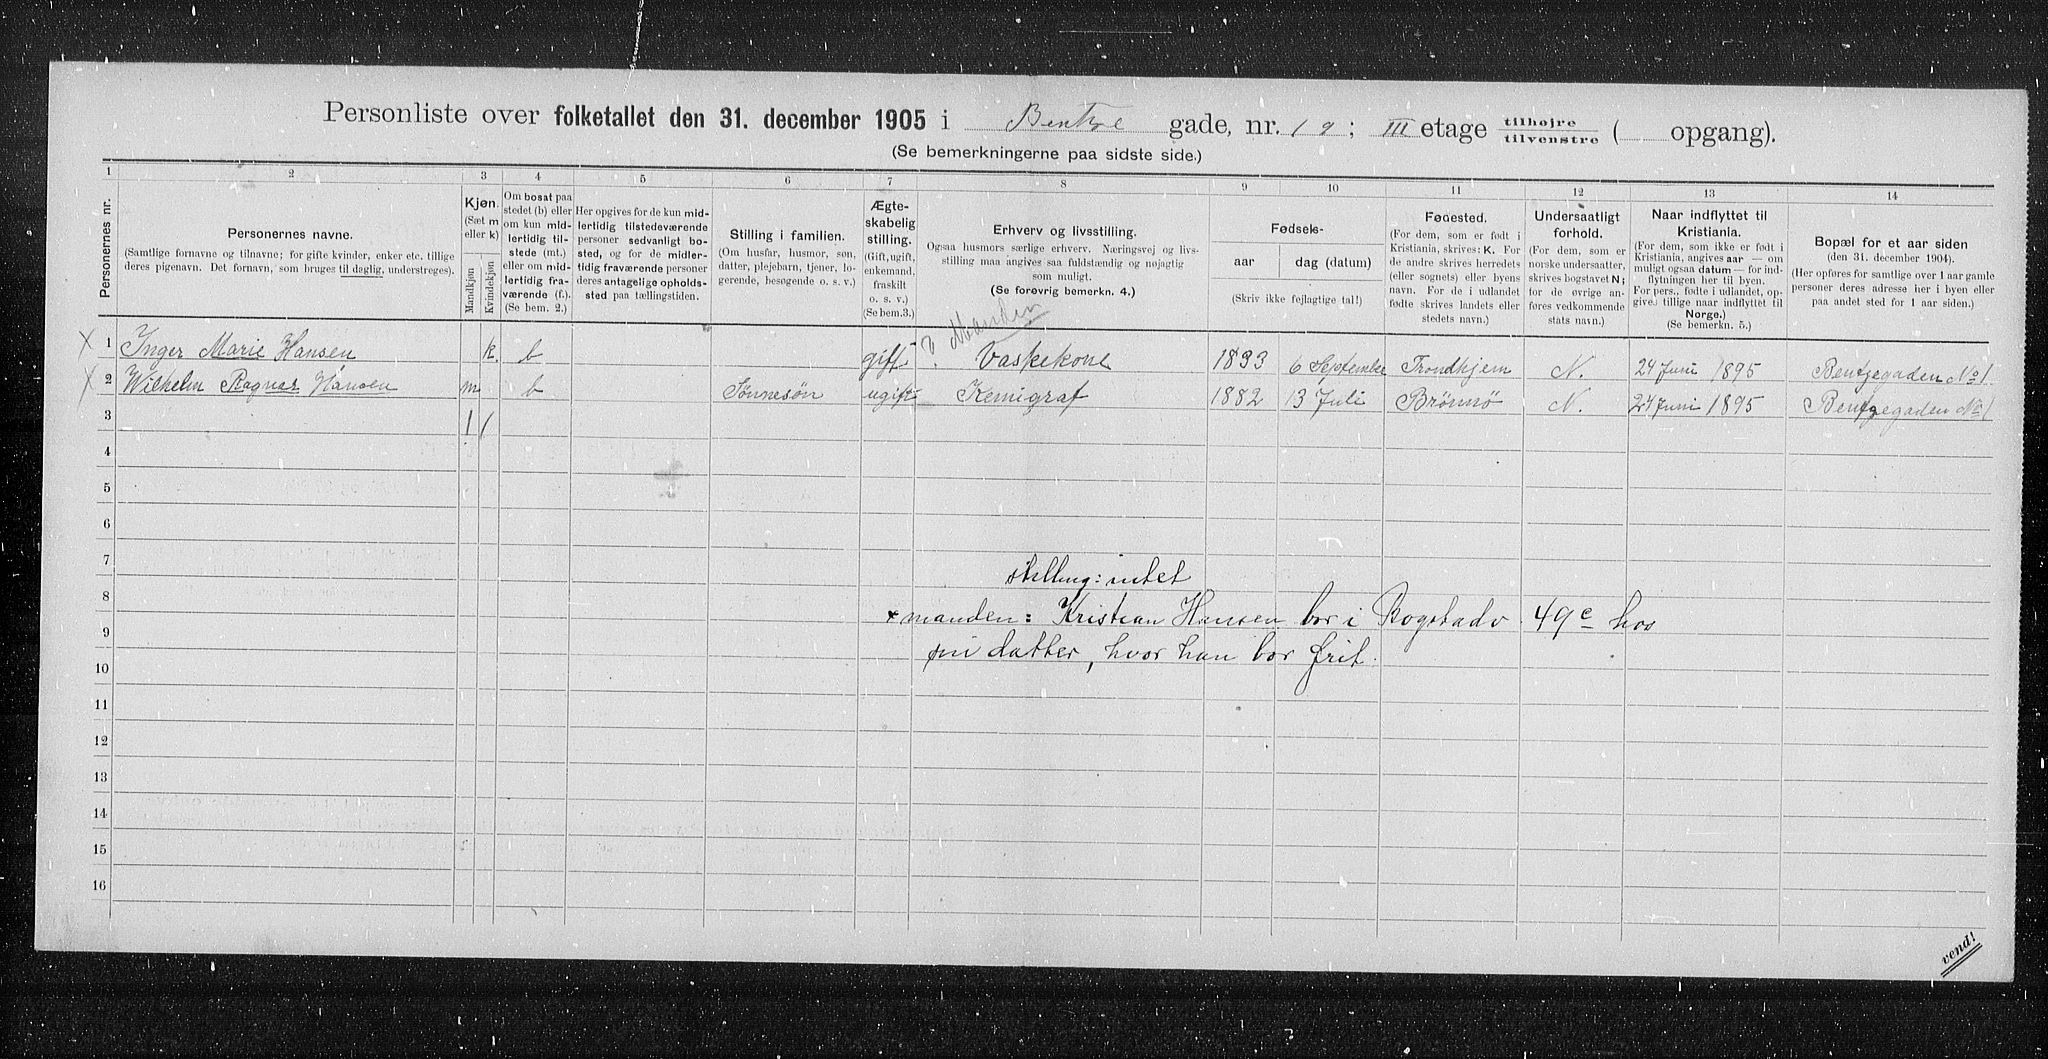 Personliste over folketallet den 31. december 1905 i Bentze gade, nr. 19; III etage tilhøjre tilvenstre ( opgang).
(Se bemerkningerne paa sidste side.)
1 2 3 4 5 6 7 8 9 10 11 12 13 14
Personernes nr.
Personernes navne.
(Samtlige fornavne og tilnavne; for gifte kvinder, enker etc. tillige
deres pigenavn. Det fornavn, som bruges til daglig, understreges).
Kjøn.
(Sæt m
eller k)
Mandkjøn
Kvindekjøn
Om bosat paa
stedet (b) eller
om kun mid-
lertidig til-
stede (mt.)
eller om mid-
lertidig fra-
værende (f.).
(Se bem. 2.)
Her opgives for de kun mid-
lertidig tilstedeværende
personer sedvanlig bo-
sted, og for de midler-
tidig fraværende personer
deres antagelige opholds-
sted paa tællingstiden.
Stilling i familien.
(Om husfar, husmor, søn,
datter, plejebarn, tjener, lo-
gerende, besøgende o. s. v.)
Ægte-
skabelig
stilling.
(Gift, ugift,
enkemand,
fraskilt
o. s. v.)
(Se bem.3.)
Erhverv og livsstilling.
Ogsaa husmors særlige erhverv. Næringsvej og livs-
stilling maa angives saa fuldstændig og nøjagtig
som muligt.
(Se forøvrig bemerkn. 4.)
Fødsels-
aar dag (datum)
(Skriv ikke fejlagtige tal!)
Fødested.
(For dem, som er født i
Kristiania, skrives: K. For
de andre skrives herredets
(eller sognets) eller byens
navn. For de i udlandet
fødte skrives landets eller
stedets navn.)
Undersaatligt
forhold.
(For dem, som er
norske undersaatter,
skrives bogstavet N;
for de øvrige an-
føres vedkommende
stats navn.)
Naar indflyttet til
Kristiania.
(For dem, som ikke er født i
Kristiania, angives aar — om
muligt ogsaa datum — for ind-
flytningen her til byen.
For pers., fødte i udlandet, op-
gives tillige naar indflyttet til
Norge.)
(Se bemerkn. 5.)
Bopæl for et aar siden
(den 31. december 1904).
(Her opføres for samtlige over 1 aar gamle
personer deres adresse her i byen eller
paa andet sted for 1 aar siden.)
? Manden
X 1 Inger Marie Hansen k. b gift Vaskekone 1833 6 Septembe Trondhjem N. 24 Juni 1895 Bentzegaden No 1
X 2 Wilhelm Ragnar Hansen m b Sønnesøn ugift Kemigraf 1882 13 Juli Brønnø N. 24 Juni 1895 Bentzegaden No 1
3 1 1
4
5
6
7
stilling: intet
8
x manden: Kristian Hansen bor i Bogstadv. 49c hos
9
sin datter, hvor han bor frit.
10
11
12
13
14
15
16
vend!